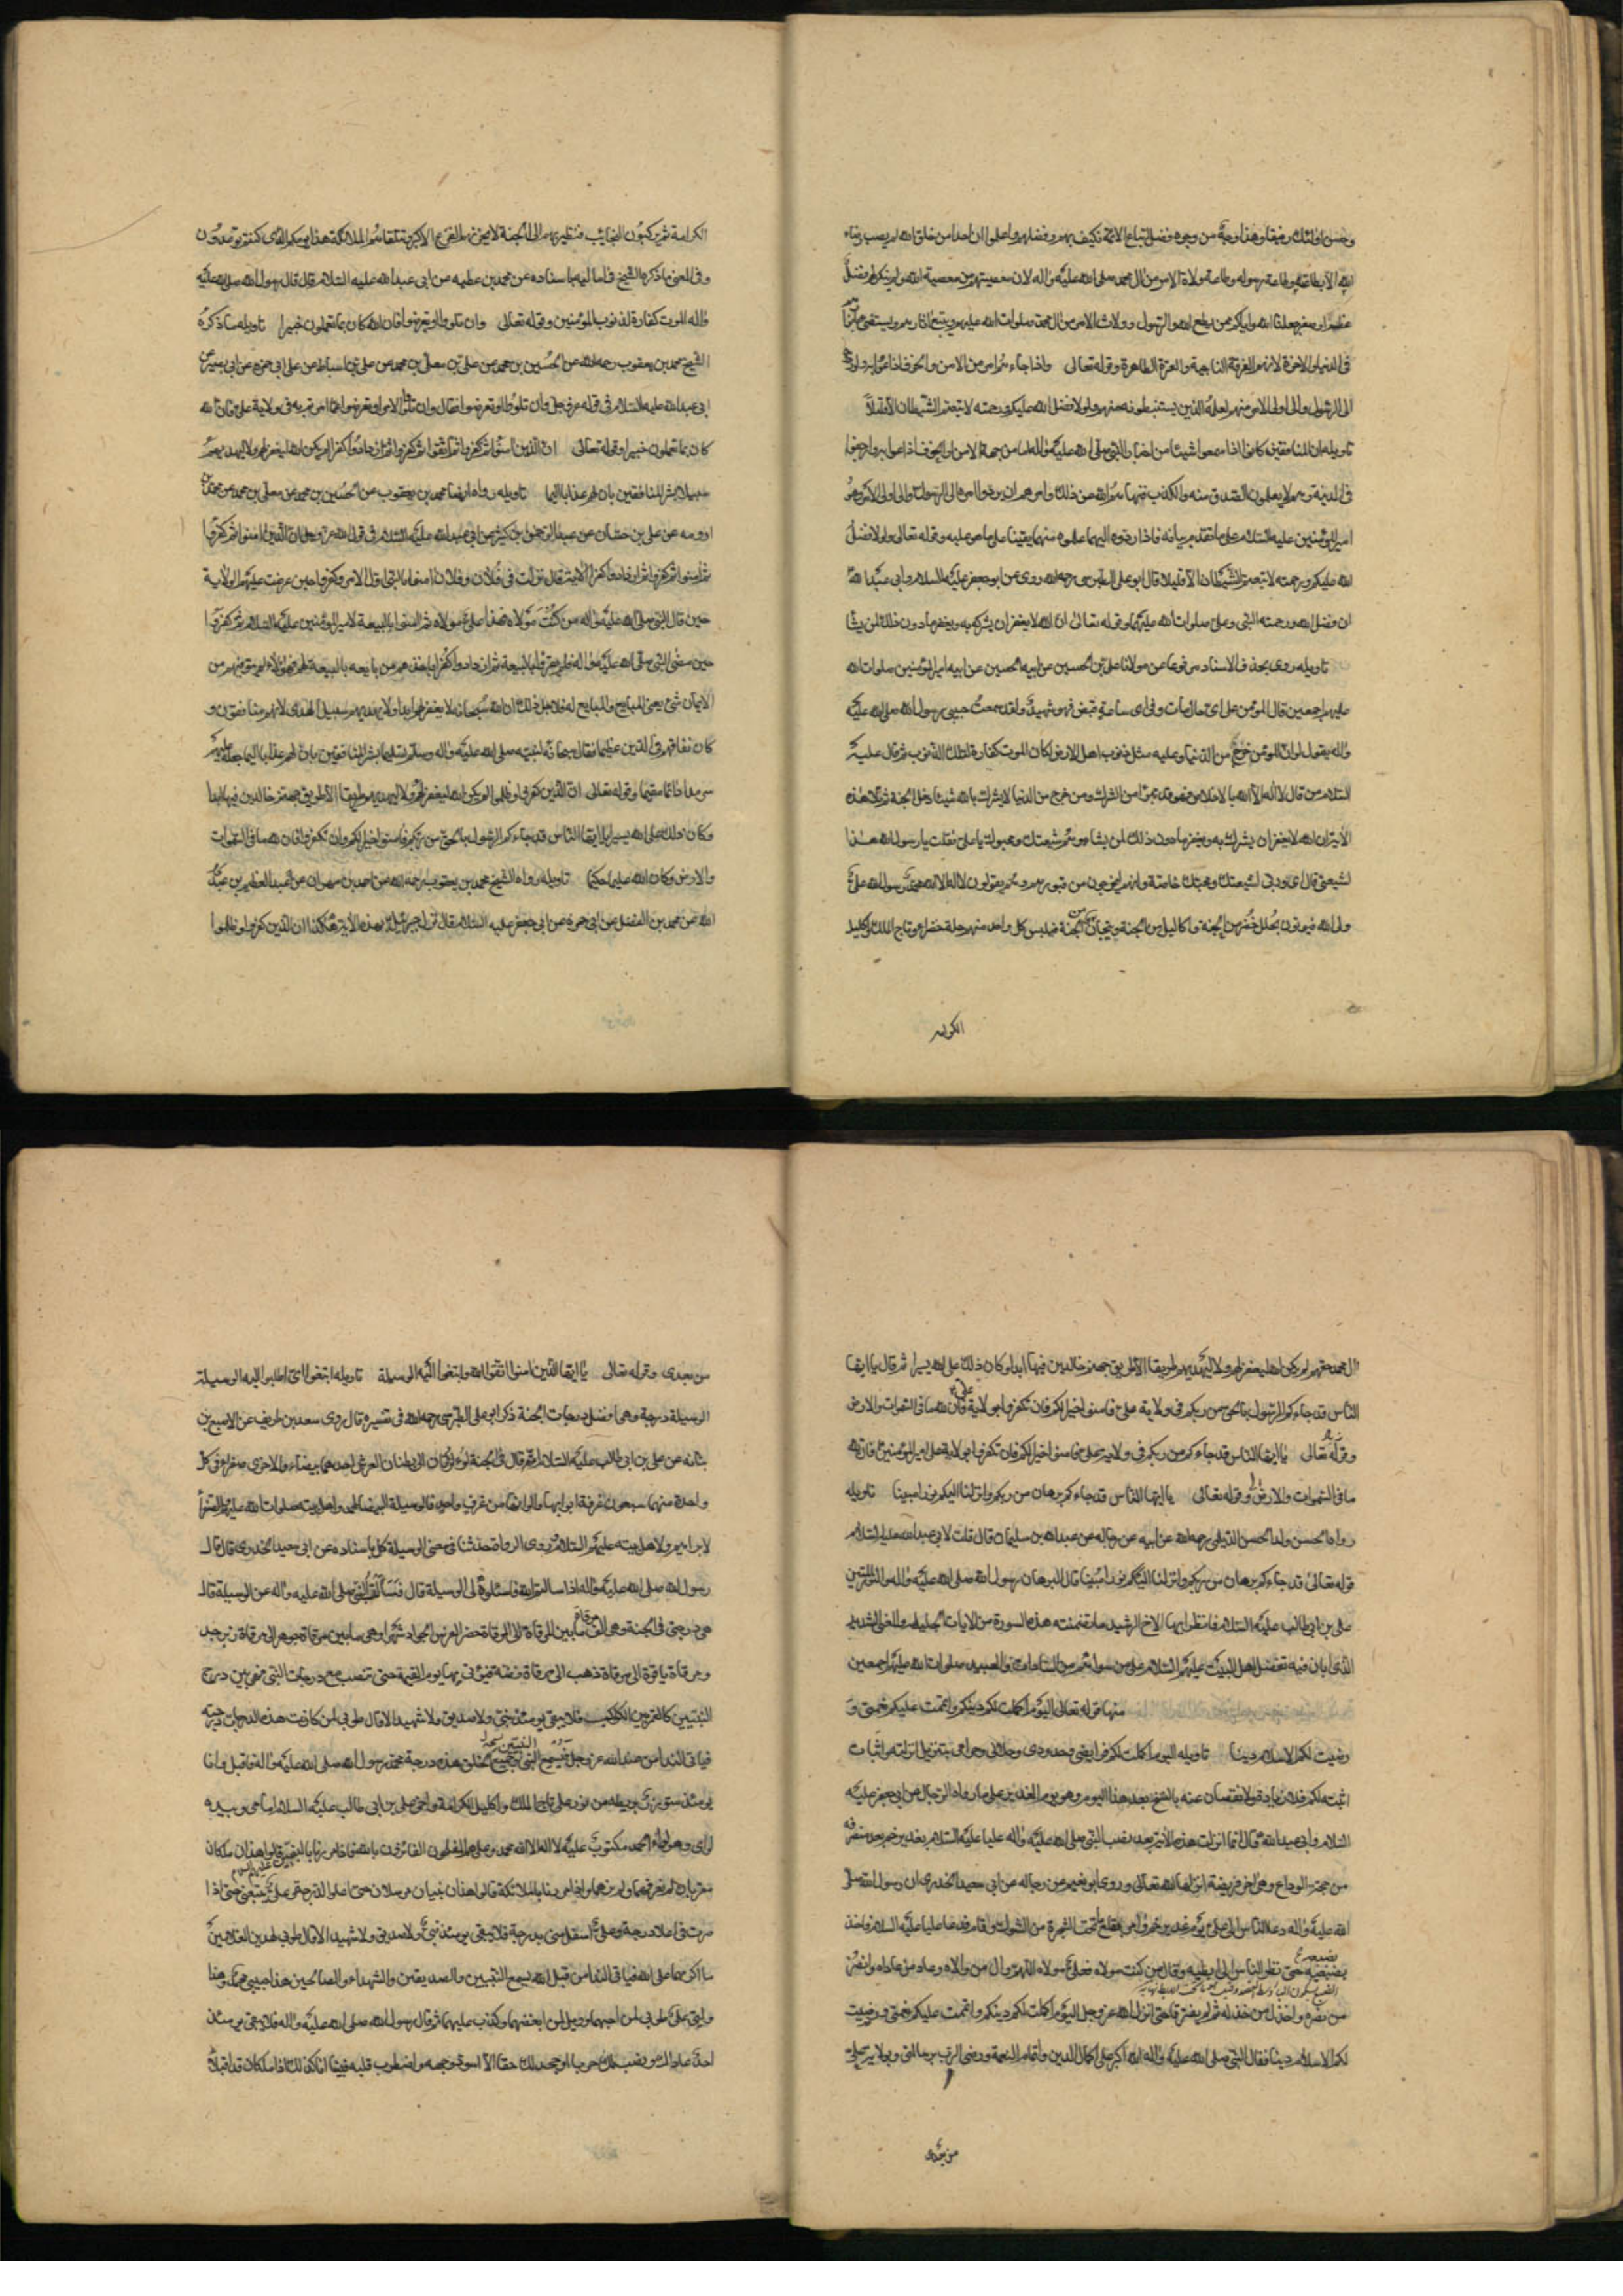 وحسن اولئك رفيقا وهذا وجه من وجوه فضل اتباع الائمة فكيف بهم وفضلهم واعلموا ان احدا من خلق الله لم يصب رضاء
الله الا بطاعته وطاعة رسوله وطاعة ولاة الامر من آل محمد صلى الله عليه واله لان معصيتهم من معصية الله ولم ينكر لهم فضل
عظم او صغر جعلنا الله واياكم ممن يطع الله والرسول وولات الامر من آل محمد صلوات الله عليهم ويتبع اثارهم ويستضئ بانوارهم
فى الدنيا والاخرة لانهم الفرقة الناجية والعترة الطاهرة وقوله تعالى واذا جاءهم امر من الامن والخوف اذاعوا به ولو ردوه
الى الرسول والى اولى الامر منهم لعلمه الذين يستنبطونه منهم ولولا فضل الله عليكم ورحمته لاتبعتم الشيطان الا قليلا
تاويله ان المنافقين كانوا اذا سمعوا شيئا من اخبار النبى صلى الله عليه واله اما من جهة الامن او الخوف اذاعوا به وارجفوا
فى المدينة وهم لا يعلمون الصدق منه والكذب فنهاهم الله عن ذلك وامرهم ان يردوا امره الى الرسول والى اولى الامر وهو
امير المؤمنين عليه السلام على ما تقدم بيانه فاذا ردوه اليهما علموه منهما يقينا على ما هو عليه وقوله تعالى ولولا فضل
الله عليكم ورحمته لاتبعتم الشيطان الا قليلا قال ابو على الطبرسى رحمه الله روى عن ابو جعفر عليه السلام وابى عبد الله
ان فضل الله ورحمته النبى وعلى صلوات الله عليهما وقوله تعالى ان الله لا يغفر ان يشرك به ويغفر ما دون ذلك لمن يشا
تاويله روى بحذف الاسناد مرفوعا عن مولانا على بن الحسين عن ابيه الحسين عن ابيه امير المؤمنين صلوات الله
عليهم اجمعين قال المؤمن على اى حال مات وفى اى ساعة قبض فهو شهيد ولقد سمعت حبيبى رسول الله صلى الله عليه
واله يقول لو ان المؤمن خرج من الدنيا وعليه مثل ذنوب اهل الارض لكان الموت كفارة لتلك الذنوب ثم قال عليه
السلام من قال لا اله الا الله بالاخلاص فهو قد برئ من الشرك ومن خرج من الدنيا لا يشرك بالله شيئا دخل الجنة ثم تلا هذه
الآية ان الله لا يغفر ان يشرك به ويغفر ما دون ذلك لمن يشاء وهم شيعتك ومحبوك يا على فقلت يا رسول الله هذا
لشيعتى قال اى وربى لشيعتك ومحبيك خاصة وانهم ليخرجون من قبورهم وهم يقولون لا اله الا الله محمد رسول الله على
ولى الله فيوتون بحلل خضر من الجنة واكاليل من الجنة وتيجان من الجنة فيلبس كل واحد منهم حلة خضراء وتاج الملك واكليل
الكرامه
الكرامة ثم يركبون النجائب فتطير بهم الى الجنة لا يحزنهم الفزع الاكبر وتتلقاهم الملائكة هذا يومكم الذى كنتم توعدون
وفى المعنى ما ذكره الشيخ فى اماليه باسناده عن محمد بن عطيه عن ابى عبد الله عليه السلام قال قال رسول الله صلى الله عليه
واله الموت كفارة لذنوب المؤمنين وقوله تعالى وان تلووا او تعرضوا فان الله كان بما تعملون خبيرا تاويله ما ذكره
الشيخ محمد بن يعقوب رحمه الله عن الحسين بن محمد عن معلى بن محمد عن على بن اسباط عن على بن ابى حمزه عن ابى بصير عن
ابى عبد الله عليه السلام فى قوله عز وجل وان تلووا او تعرضوا فقال وان تلووا الامر او تعرضوا عما امرتم به فى ولاية على فان الله
كان بما تعملون خبيرا وقوله تعالى ان الذين امنوا ثم كفروا ثم امنوا ثم كفروا ثم ازدادوا كفرا لم يكن الله ليغفر لهم ولا ليهديهم
سبيلا بشر المنافقين بان لهم عذابا اليما تاويله رواه ايضا محمد بن يعقوب عن الحسين بن محمد عن معلى بن محمد عن محمد بن
ارومه عن على بن حسان عن عبد الرحمن بن كثير عن ابى عبد الله عليه السلام فى قول الله عز وجل ان الذين امنوا ثم كفروا
ثم امنوا ثم كفروا ثم ازدادوا كفرا الآية قال نزلت فى فلان وفلان امنوا بالنبى اول الامر وكفروا حين عرضت عليهم الولاية
حين قال النبى صلى الله عليه واله من كنت مولاه فهذا على مولاه ثم امنوا بالبيعة لامير المؤمنين عليه السلام ثم كفروا
حين مضى النبى صلى الله عليه واله فلم يقروا بالبيعة ثم ازدادوا كفرا باخذهم من بايعه بالبيعة لهم فهؤلاء لم يبق منهم من
الايمان شئ يعنى المبايع والمبايع له فلاجل ذلك ان الله سبحانه لا يغفر لهم ابدا ولا يهديهم سبيل الهدى لانهم منافقون و
كان نفاقهم فى الدين عظيما فقال سبحانه لنبيه صلى الله عليه واله وسلم تسليما بشر المنافقين بان لهم عذابا اليما جعله عليهم
سرمدا دائما مقيما وقوله تعالى ان الذين كفروا وظلموا لم يكن الله ليغفر لهم ولا ليهديهم طريقا الا طريق جهنم خالدين فيها ابدا
وكان ذلك على الله يسيرا يا ايها الناس قد جاءكم الرسول بالحق من ربكم فامنوا خيرا لكم وان تكفروا فان لله ما فى السموات
والارض وكان الله عليما حكيما تاويله رواه الشيخ محمد بن يعقوب رحمه الله عن احمد بن مهران عن عبد العظيم بن عبد
الله عن محمد بن الفضل عن ابى حمزة عن ابى جعفر عليه السلام قال نزل جبرئيل بهذه الآية هكذا ان الذين كفروا وظلموا
آل محمد حقهم لم يكن الله ليغفر لهم ولا ليهديهم طريقا الا طريق جهنم خالدين فيها ابدا وكان ذلك على الله يسيرا ثم قال يا ايها
الناس قد جاءكم الرسول بالحق من ربكم فى ولاية على فامنوا خيرا لكم فان تكفروا بولاية على فان لله ما فى السموات والارض
وقوله تعالى يا ايها الناس قد جاءكم من ربكم فى ولاية على فامنوا خيرا لكم فان تكفروا بولاية على امير المؤمنين فان لله
ما فى السموات والارض وقوله تعالى يا ايها الناس قد جاءكم برهان من ربكم وانزلنا اليكم نورا مبينا تاويله
رواه الحسن ولد الحسن الديلمى رحمه الله عن ابيه عن رجاله عن عبد الله بن سليمان قال قلت لابى عبد الله عليه السلام
قوله تعالى قد جاءكم برهان من ربكم وانزلنا اليكم نورا مبينا قال البرهان رسول الله صلى الله عليه واله والنور المبين
على بن ابى طالب عليه السلام فانظر ايها الاخ الرشيد ما تضمنته هذه السورة من الايات الجليله والمعنى الشديد
الذى ابان فيه تفضيل اهل البيت عليهم السلام على من سواهم من السادات والعبيد صلوات الله عليهم اجمعين
منها قوله تعالى اليوم اكملت لكم دينكم واتممت عليكم نعمتى و
رضيت لكم الاسلام دينا تاويله اليوم اكملت لكم فرايضى وحدودى وحلالى وحرامى بتنزيل انزلته واثبات
اثبته لكم فلا زيادة ولا نقصان عنه بالنسخ بعد هذا اليوم وهو يوم الغدير على ما رواه الرجال عن ابى جعفر عليه
السلام وابى عبد الله قال انما انزلت هذه الآية بعد نصب النبى صلى الله عليه واله عليا عليه السلام بغدير خم بعد منصرفه
من حجة الوداع وهى اخر فريضة انزلها الله تعالى وروى ابو نعيم عن رجاله عن ابى سعيد الخدرى ان رسول الله صلى
الله عليه واله دعا الناس الى على يوم غدير خم وامر بقلع ما تحت الشجرة من الشوك وقام فدعا عليا عليه السلام فاخذ
بضبعيه حتى نظر الناس الى ابطيه وقال من كنت مولاه فعلى مولاه اللهم وال من والاه وعاد من عاداه وانصر
من نصره واخذل من خذله ثم لم يفترقا حتى انزل الله عز وجل اليوم اكملت لكم دينكم واتممت عليكم نعمتى ورضيت
لكم الاسلام دينا فقال النبى صلى الله عليه واله الله اكبر على اكمال الدين واتمام النعمة ورضى الرب برسالتى وبولاية على
من بعدى
من بعدى وقوله تعالى يا ايها الذين امنوا اتقوا الله وابتغوا اليه الوسيلة تاويله ابتغوا اى اطلبوا اليه الوسيلة
الوسيلة درجة وهى افضل درجات الجنة ذكر ابى على الطبرسى رحمه الله فى تفسيره قال روى سعد بن طريف عن الاصبغ بن
نباته عن على بن ابى طالب عليه السلام انه قال فى الجنة لؤلؤتان الى بطنان العرش احدهما بيضاء والاخرى صفراء فى كل
واحدة منهما سبعون غرفة ابوابها واكوابها من غرف واحد فالوسيلة البيضاء لمحمد واهل بيته صلوات الله عليهم والصفراء
لابراهيم ولاهل بيته عليهم السلام وروى الرواة حدثنا فى معنى الوسيلة كل باسناده عن ابى سعيد الخدرى قال قال
رسول الله صلى الله عليه واله اذا سالتم الله فاسئلوه لى الوسيلة قال فسالنا النبى صلى الله عليه واله عن الوسيلة قال
هى درجتى فى الجنة وهى الف مرقاة ما بين المرقاة الى المرقاة حضر الفرس الجواد شهرا وهى ما بين مرقاة جوهر الى مرقاة زبرجد
ومرقاة ياقوة الى مرقاة ذهب الى مرقاة فضة فيؤتى بها يوم القيمة حتى تنصب مع درجات النبيين فهى بين درج
النبيين كالقمر بين الكواكب فلا يبقى يومئذ نبى ولا صديق ولا شهيد الا قال طوبى لمن كانت هذه الدرجات درجته
فياتى الندا من عند الله عز وجل فيسمع النبيين وجميع الخلق هذه درجة محمد رسول الله صلى الله عليه واله فاقبل وانا
يومئذ متزر بريطه من نور على تاج الملك واكليل الكرامة واخى على بن ابى طالب عليه السلام امامى وبيده
لوائى وهو لواء الحمد مكتوب عليه لا اله الا الله محمد وعلى المفلحون الفائزون بالله فاذا مررنا بالنبيين قالوا هذان ملكان
مقربان لم نعرفهما ولم نرهما واذا مررنا بالملائكة قالوا هذان نبيان مرسلان حتى اعلوا الدرجة وعلى يتبعنى حتى اذا
صرت فى اعلا درجة وعلى اسفل منى بدرجة فلا يبقى يومئذ نبى ولا صديق ولا شهيد الا قال طوبى لهذين الغلامين
ما اكرمهما على الله فياتى الندا من قبل الله يسمع النبيين والصديقين والشهداء والصالحين هذا حبيبى محمد وهذا
وليى على طوبى لمن احبهما وويل لمن ابغضهما وكذب عليهما ثم قال رسول الله صلى الله عليه واله فلا يبقى يومئذ
احد عاداك ونصب لك حربا او جحد لك حقا الا اسود وجهه واضطرب قلبه فبينا انا كذلك اذا ملكان قد اقبلا